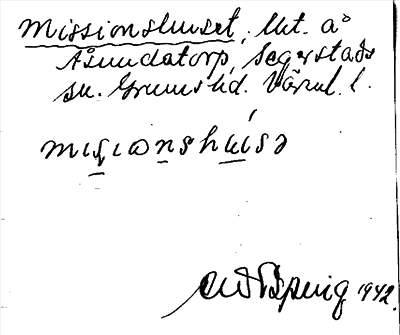 Missionshuset, Ut. å
Åsundatorp, Segerstads
sn. Grums hd. Värml. l.
miʂiωnshúisə
1942.